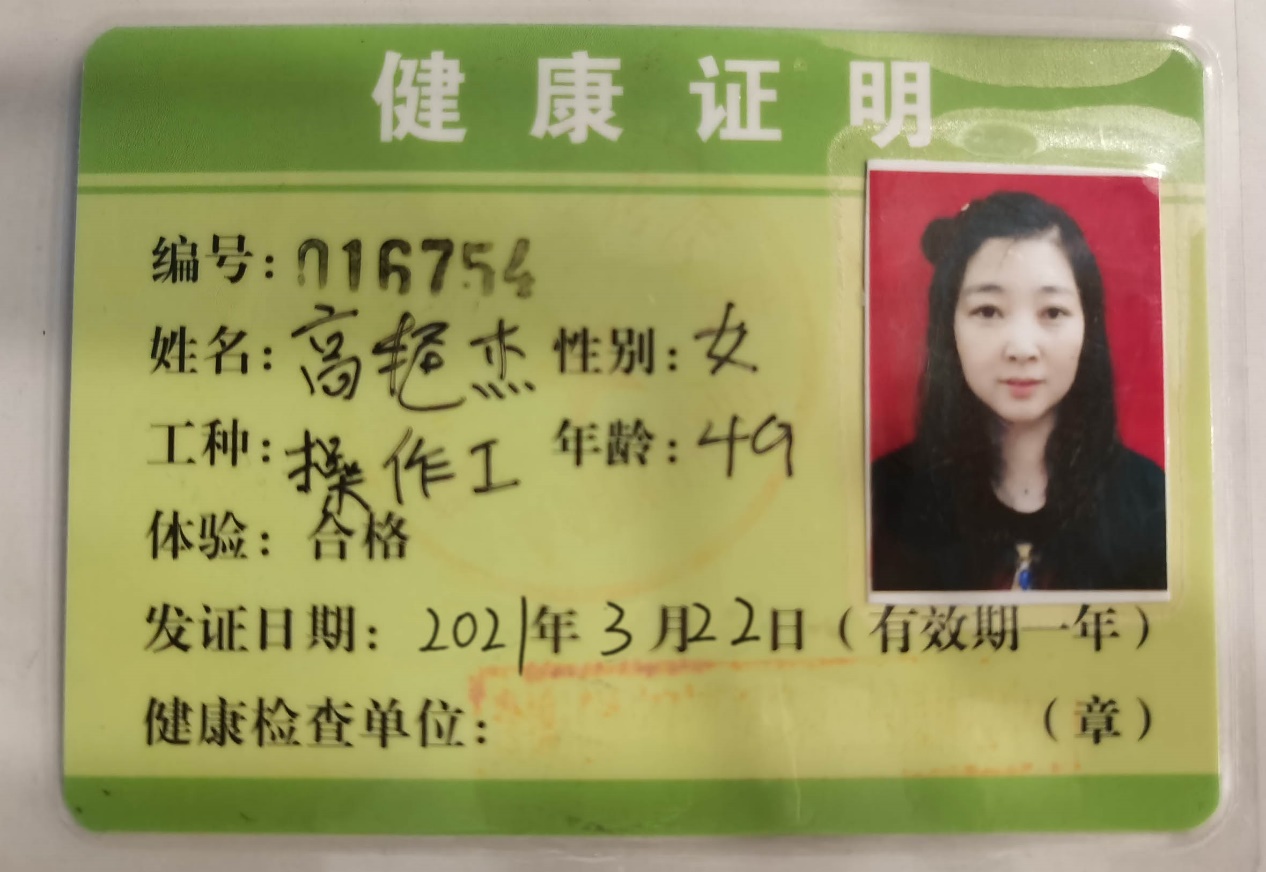 健康证明
编号：016754
姓名：高艳杰 性别：女
工种：操作工 年龄：49
体验：合格
发证日期：2021年3月22日（有效期一年）
健康检查单位： （章）